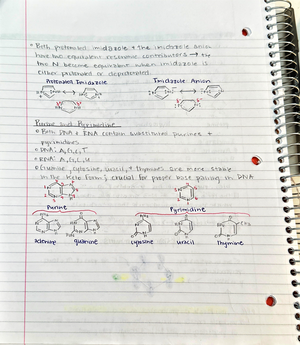 • Both protonated imidazole & the imidazole anion
have two equivalent resonance contributors → the
two N become equivalent when imidazole is
either protonated or deprotonated.
Protonated Imidazole
Imidazole Anion
Purine and Pyrimidine
• Both DNA & RNA contain substituted purines &
pyrimidines
• DNA: A, G, C, T
• RNA: A, G, C, U
• Guanine, cytosine, uracil, & thymine are more stable
in the keto form; crucial for proper base pairing in DNA
Purine
Pyrimidine
adenine
guanine
cytosine
uracil
thymine